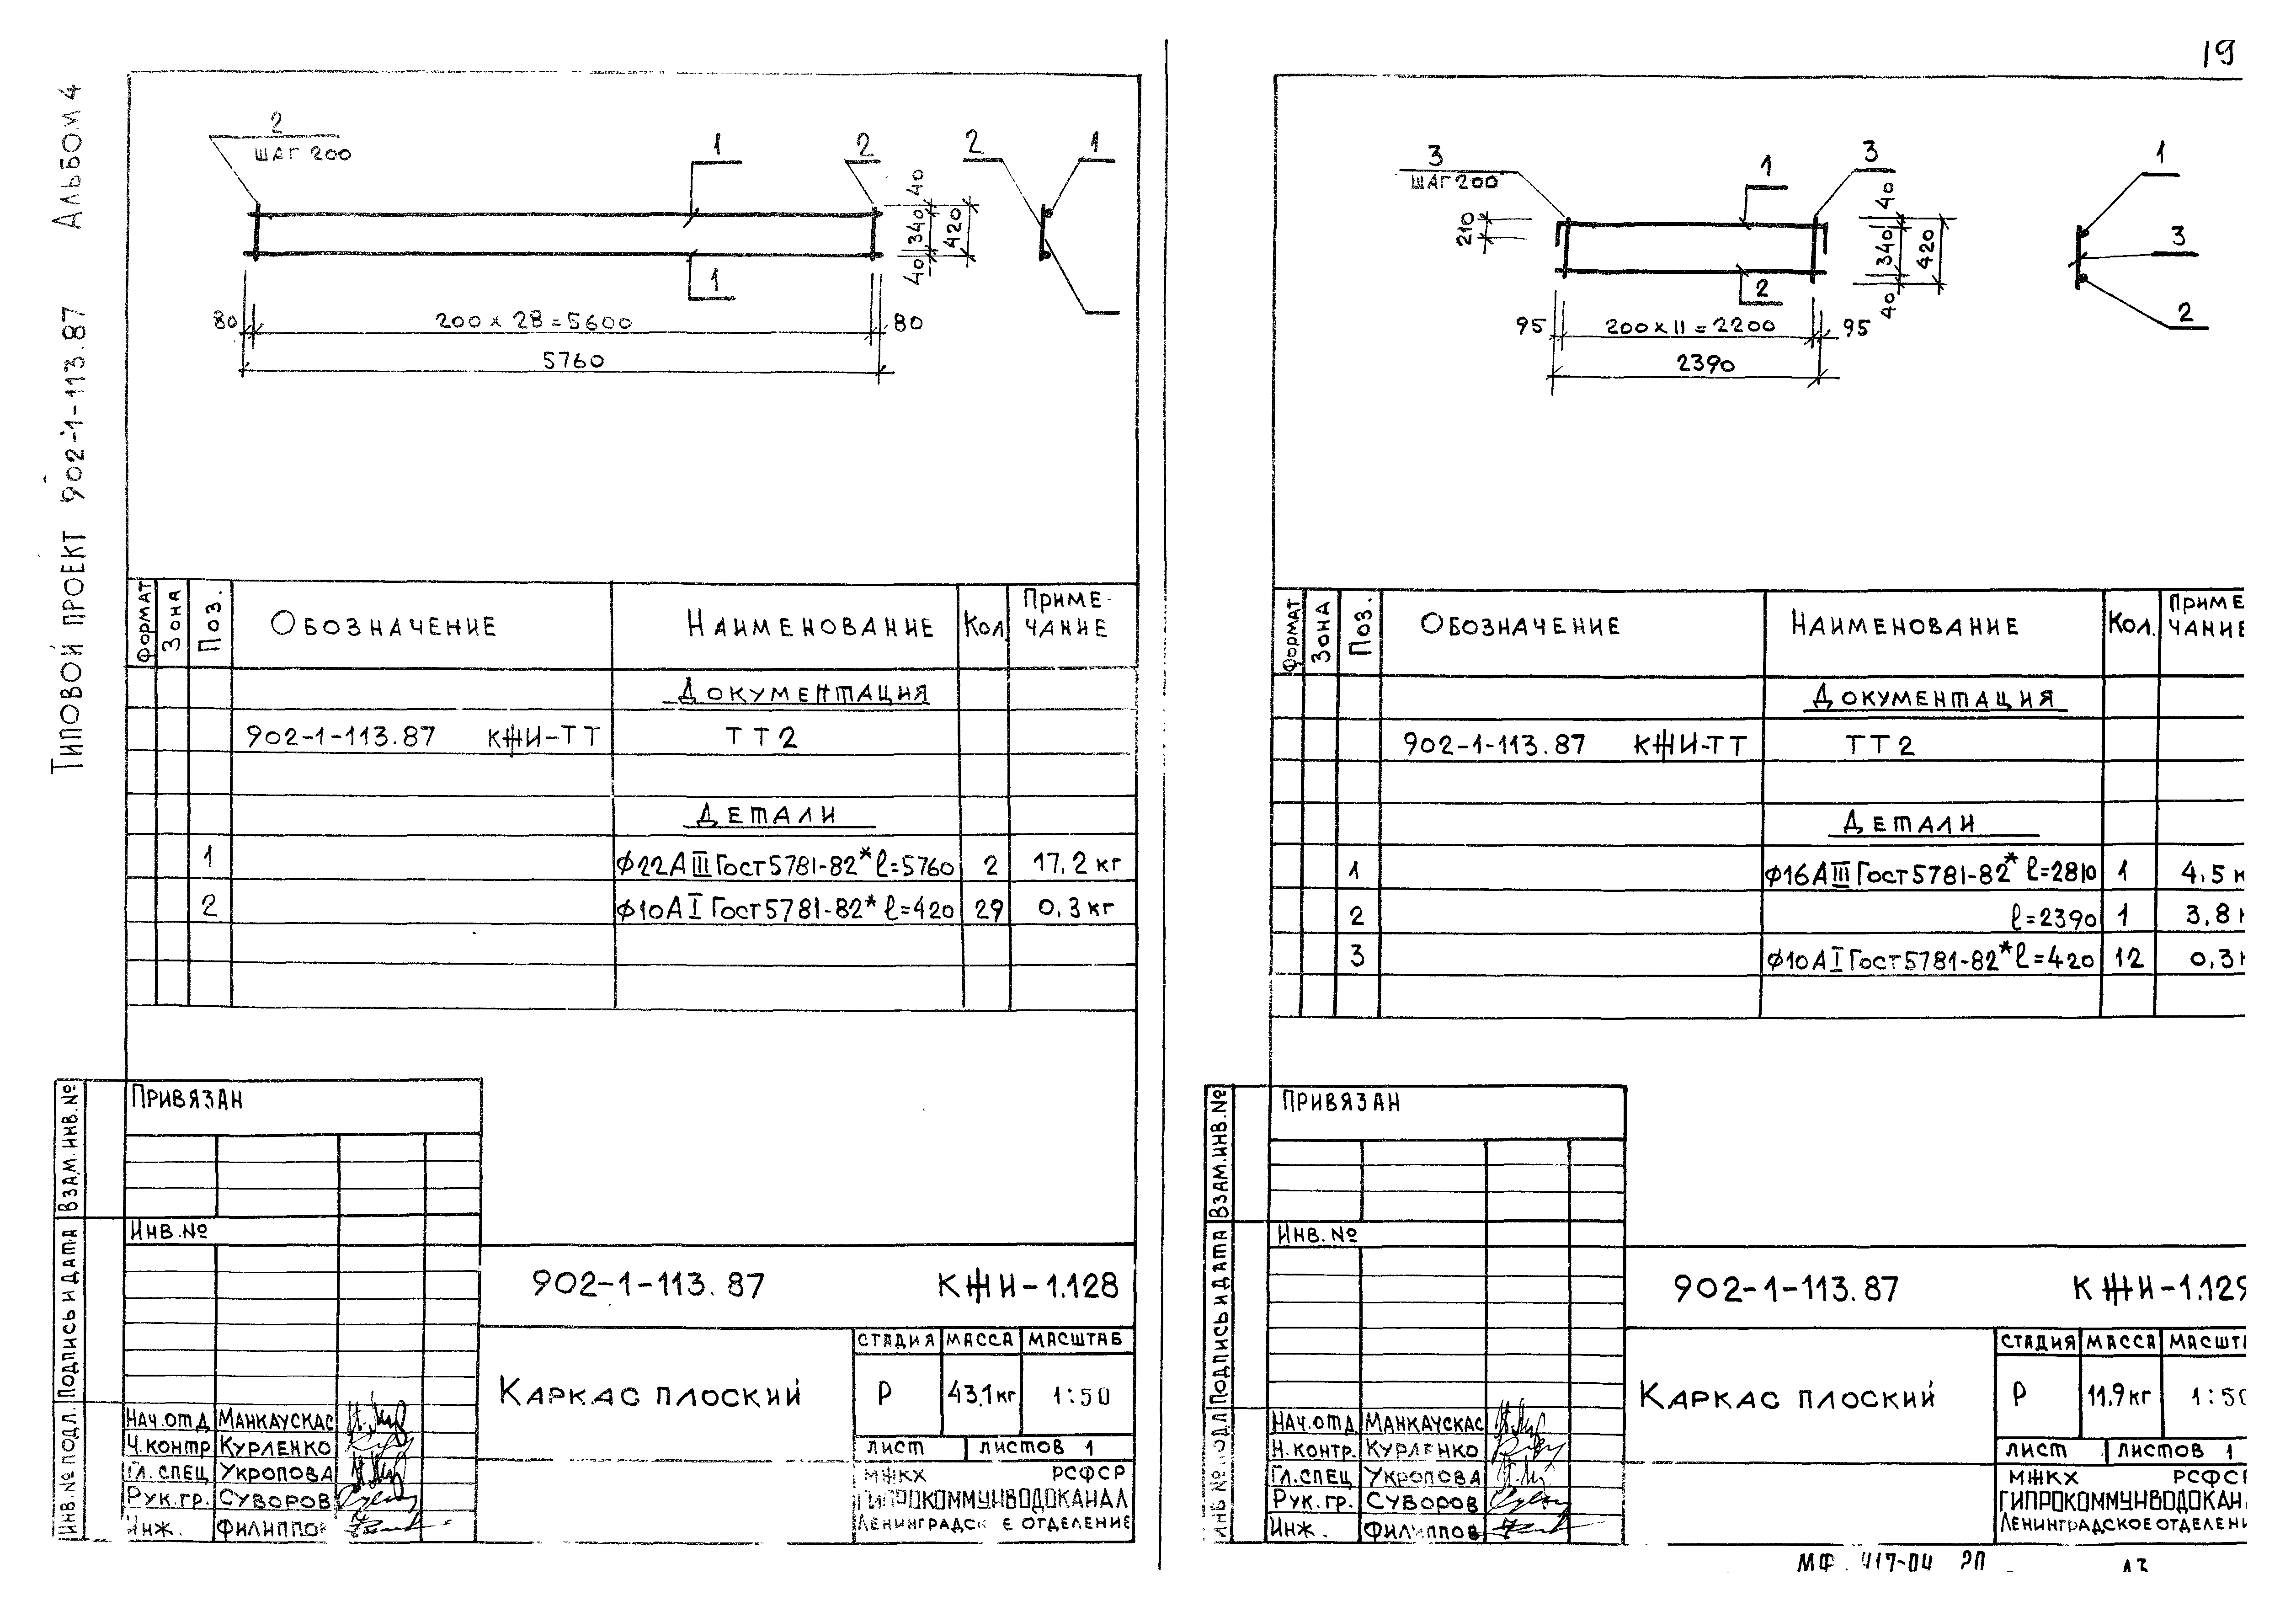 19
Типовой проект 902-1-113.87 Альбом 4
2
шаг 200
1
2
2
1
40
340
420
40
1
80
200 x 28 = 5600
80
5760
Формат
Зона
Поз.
Обозначение
Наименование
Кол.
Приме-
чание
Документация
902-1-113.87 КЖИ-ТТ ТТ2
Детали
1 ϕ22АIII Гост 5781-82* ℓ=5760 2 17,2 кг
2 ϕ10АI Гост 5781-82* ℓ=420 29 0,3 кг
Привязан
Инв.№
Взам.инв.№
Подпись и дата
Инв.№ подл.
902-1-113.87 КЖИ-1.128
Каркас плоский
Стадия Масса Масштаб
Р 43,1 кг 1:50
Лист Листов 1
МЖКХ РСФСР
ГИПРОКОММУНВОДОКАНАЛ
Ленинградск е отделение
Нач.отд Манкаускас
Ч.контр Курленко
Гл.спец Укропова
Рук.гр. Суворов
Инж. Филиппов
3
шаг 200
1
3
1
210
40
340
420
40
3
2
2
95
200 x 11 = 2200
95
2390
Формат
Зона
Поз.
Обозначение
Наименование
Кол.
Приме
чание
Документация
902-1-113.87 КЖИ-ТТ ТТ2
Детали
1 ϕ16АIII Гост 5781-82* ℓ=2810 1 4,5 к
2 ℓ=2390 1 3,8 к
3 ϕ10АI Гост 5781-82* ℓ=420 12 0,3 к
Привязан
Инв.№
Взам.инв.№
Подпись и дата
Инв.№ подл
902-1-113.87 КЖИ-1.129
Каркас плоский
Стадия Масса Масшта
Р 11,9 кг 1:50
Лист Листов 1
МЖКХ РСФСР
ГИПРОКОММУНВОДОКАНА
Ленинградское отделени
Нач.отд. Манкаускас
Н.контр. Курленко
Гл.спец Укропова
Рук.гр. Суворов
Инж. Филиппов